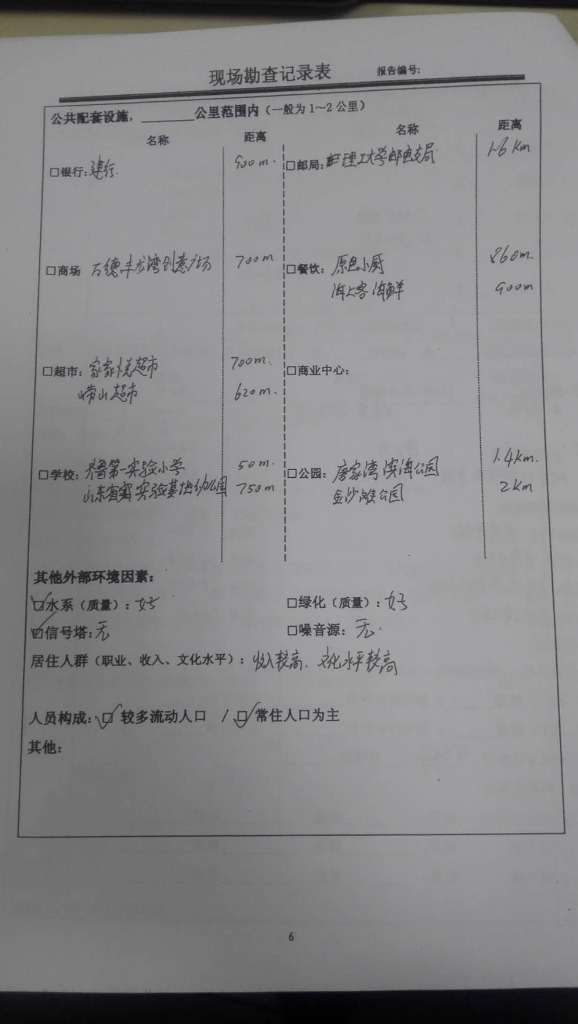 现场勘查记录表 报告编号:
公共配套设施，________公里范围内（一般为1～2公里）
名称 距离 名称 距离
□银行:建行. 900m. □邮局: 理工大学邮电支局 1.6km
□商场 万德丰龙湾创意广场 700m □餐饮: 原色小厨 860m.
海上客海鲜 900m
□超市: 家家悦超市 700m. □商业中心:
崂山超市 620m.
□学校: 齐鲁第一实验小学 50m. □公园: 唐家湾滨海公园 1.4km.
山东省 实验基地幼儿园 750m 金沙滩公园 2km
其他外部环境因素:
□水系（质量）: 好 □绿化（质量）: 好
□信号塔: 无 □噪音源: 无.
居住人群（职业、收入、文化水平）: 收入较高、文化水平较高
人员构成: □ 较多流动人口 / □ 常住人口为主
其他:
6